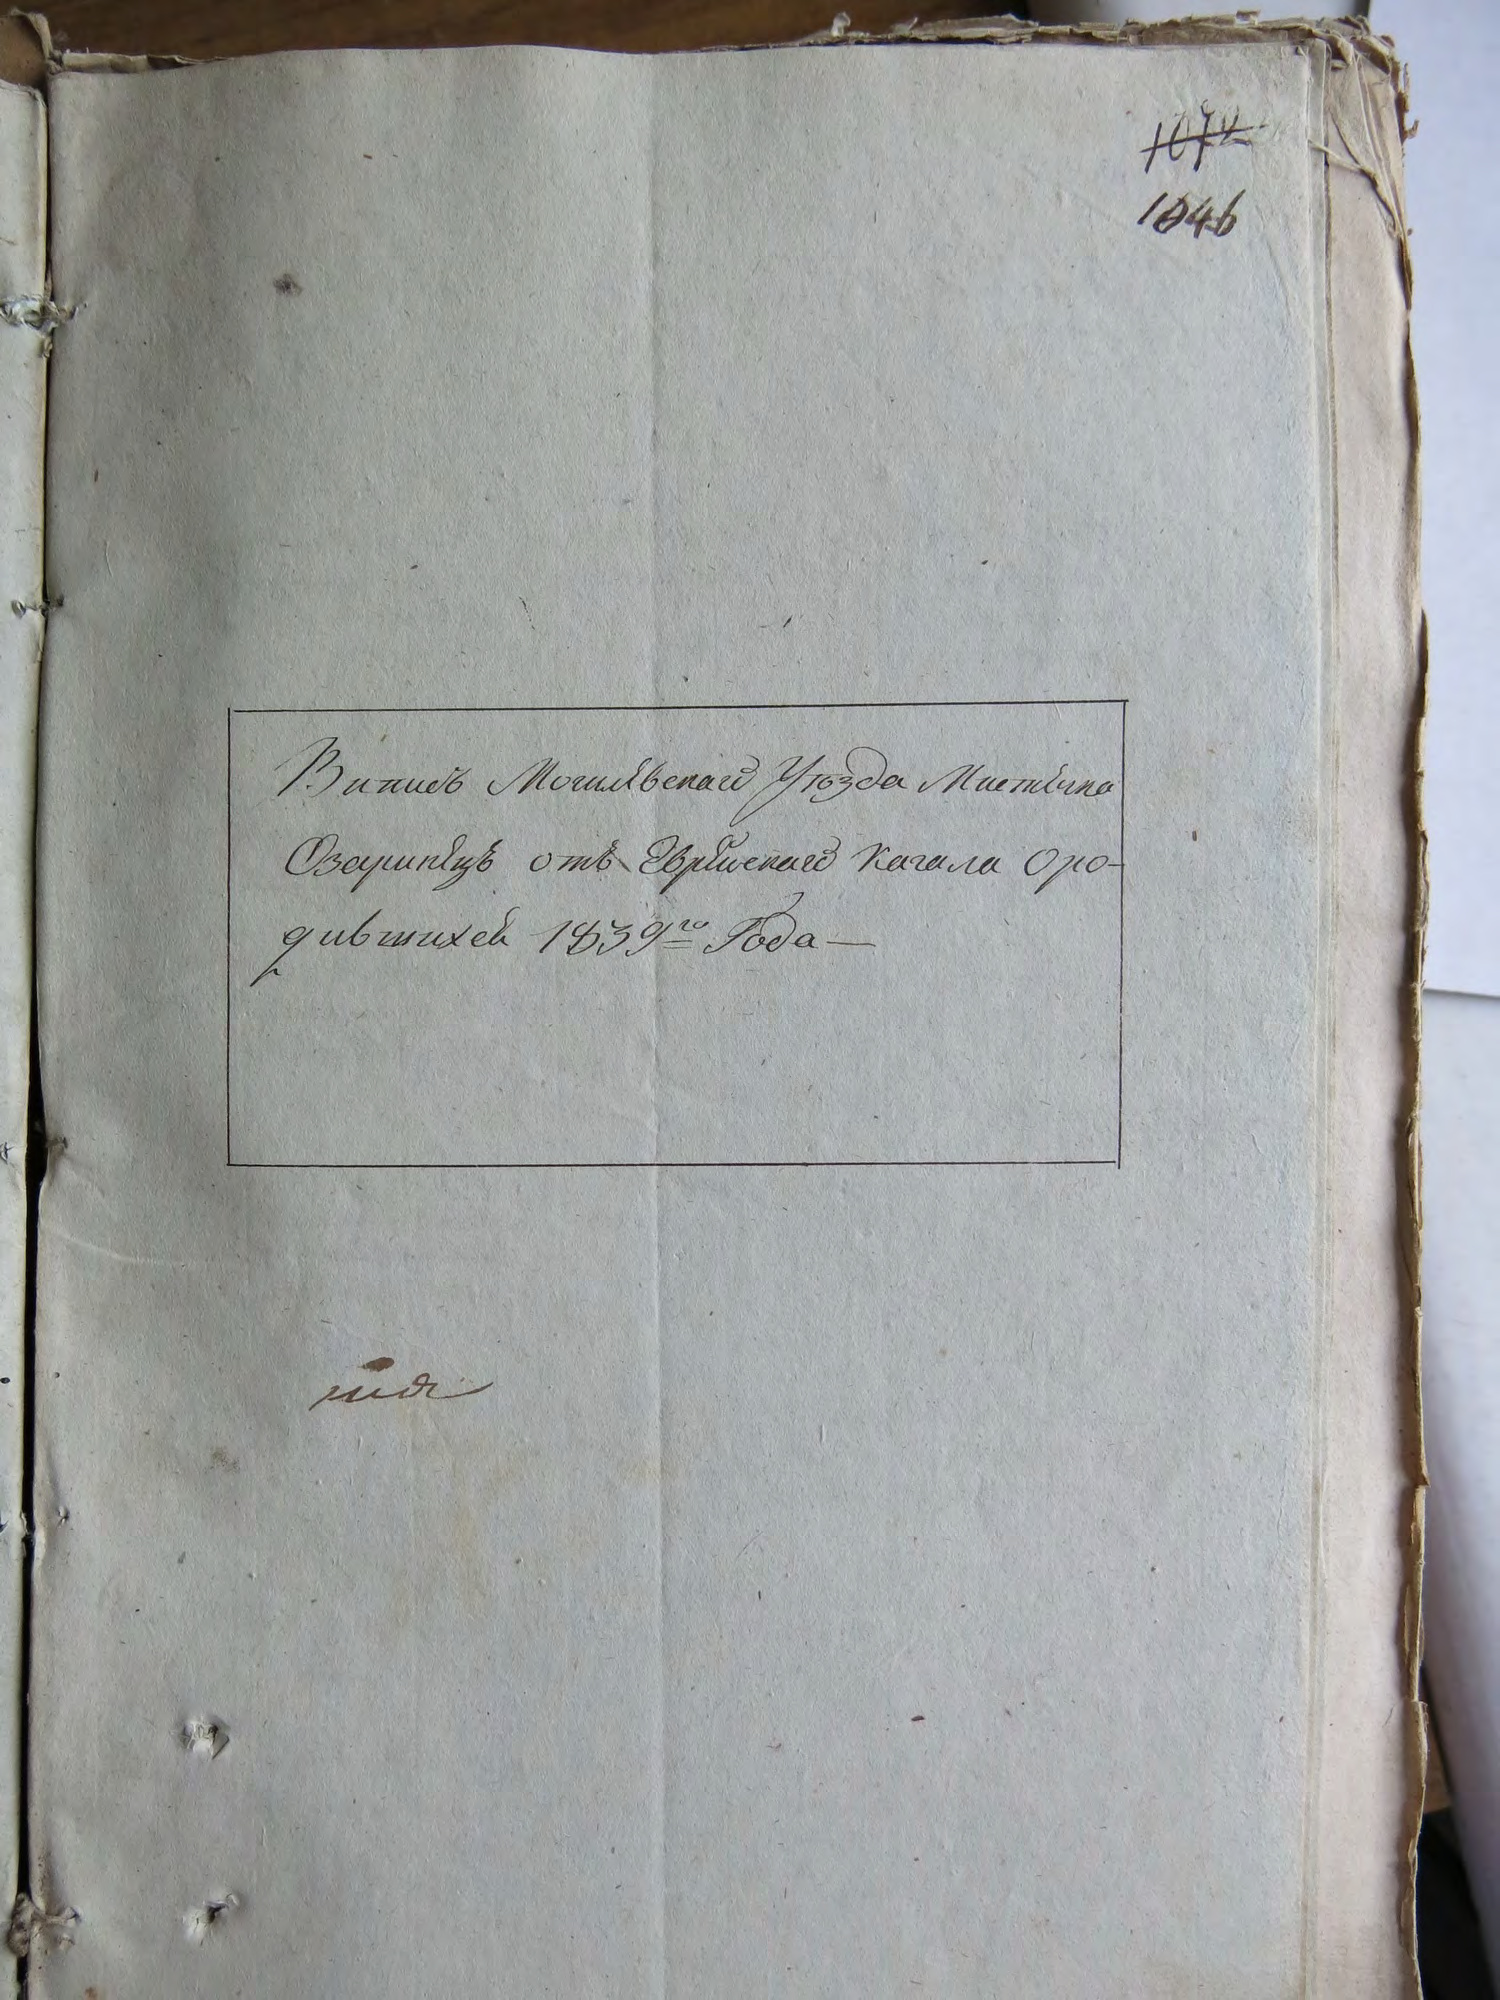 1072
1046
Випись Могилѣвскаго Уѣзда Мистечка
Озаринецъ отъ Еврейскаго Кагала оро-
дившихся 1839го Года —